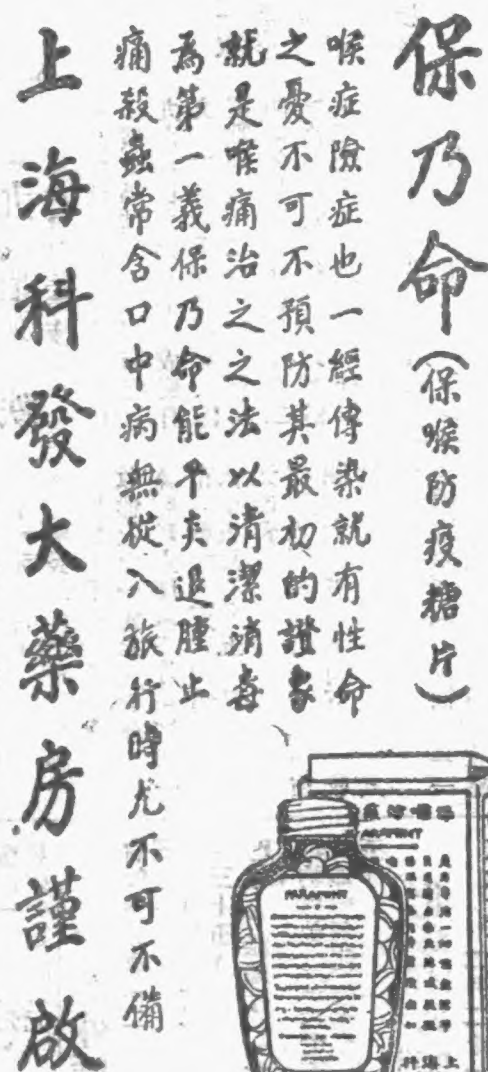 保乃命（保喉防疫糖片）
喉症險症也一經傳染就有性命
之憂不可不預防其最初的證象
就是喉痛治之之法以清潔消毒
為第一義保乃命能平炎退腫止
痛殺蟲常含口中病無從入旅行時尤不可不備
上海科發大藥房謹啟
PARAMINT
PARAMINT
上海科